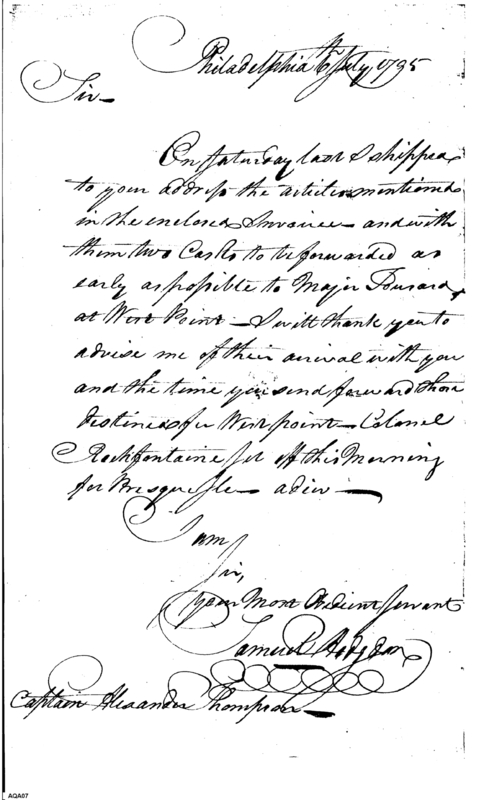 Philadelphia 6th July, 1795
Sir—
On Saturday last I shipped
to your address the articles mentioned
in the enclosed Invoice— and with
them two Casks to be forwarded as
early as possible to Major Tousard
at West Point— I will thank you to
advise me of their arrival with you
and the time you send forward those
destined for West point— Colonel
Rochfontaine set off this Morning
for Presque Isle— adieu—
I am
Sir,
your Most Obedient Servant
Samuel Hodgdon
Captain Alexander Thompson—
AQA07